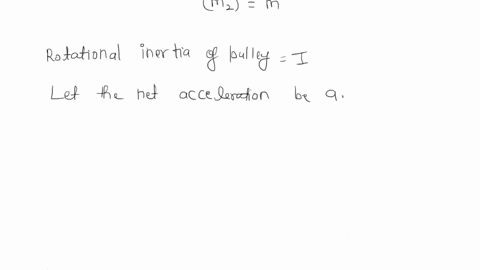 (m₂) = m
Rotational inertia of pulley = I
Let the net acceleration be a.